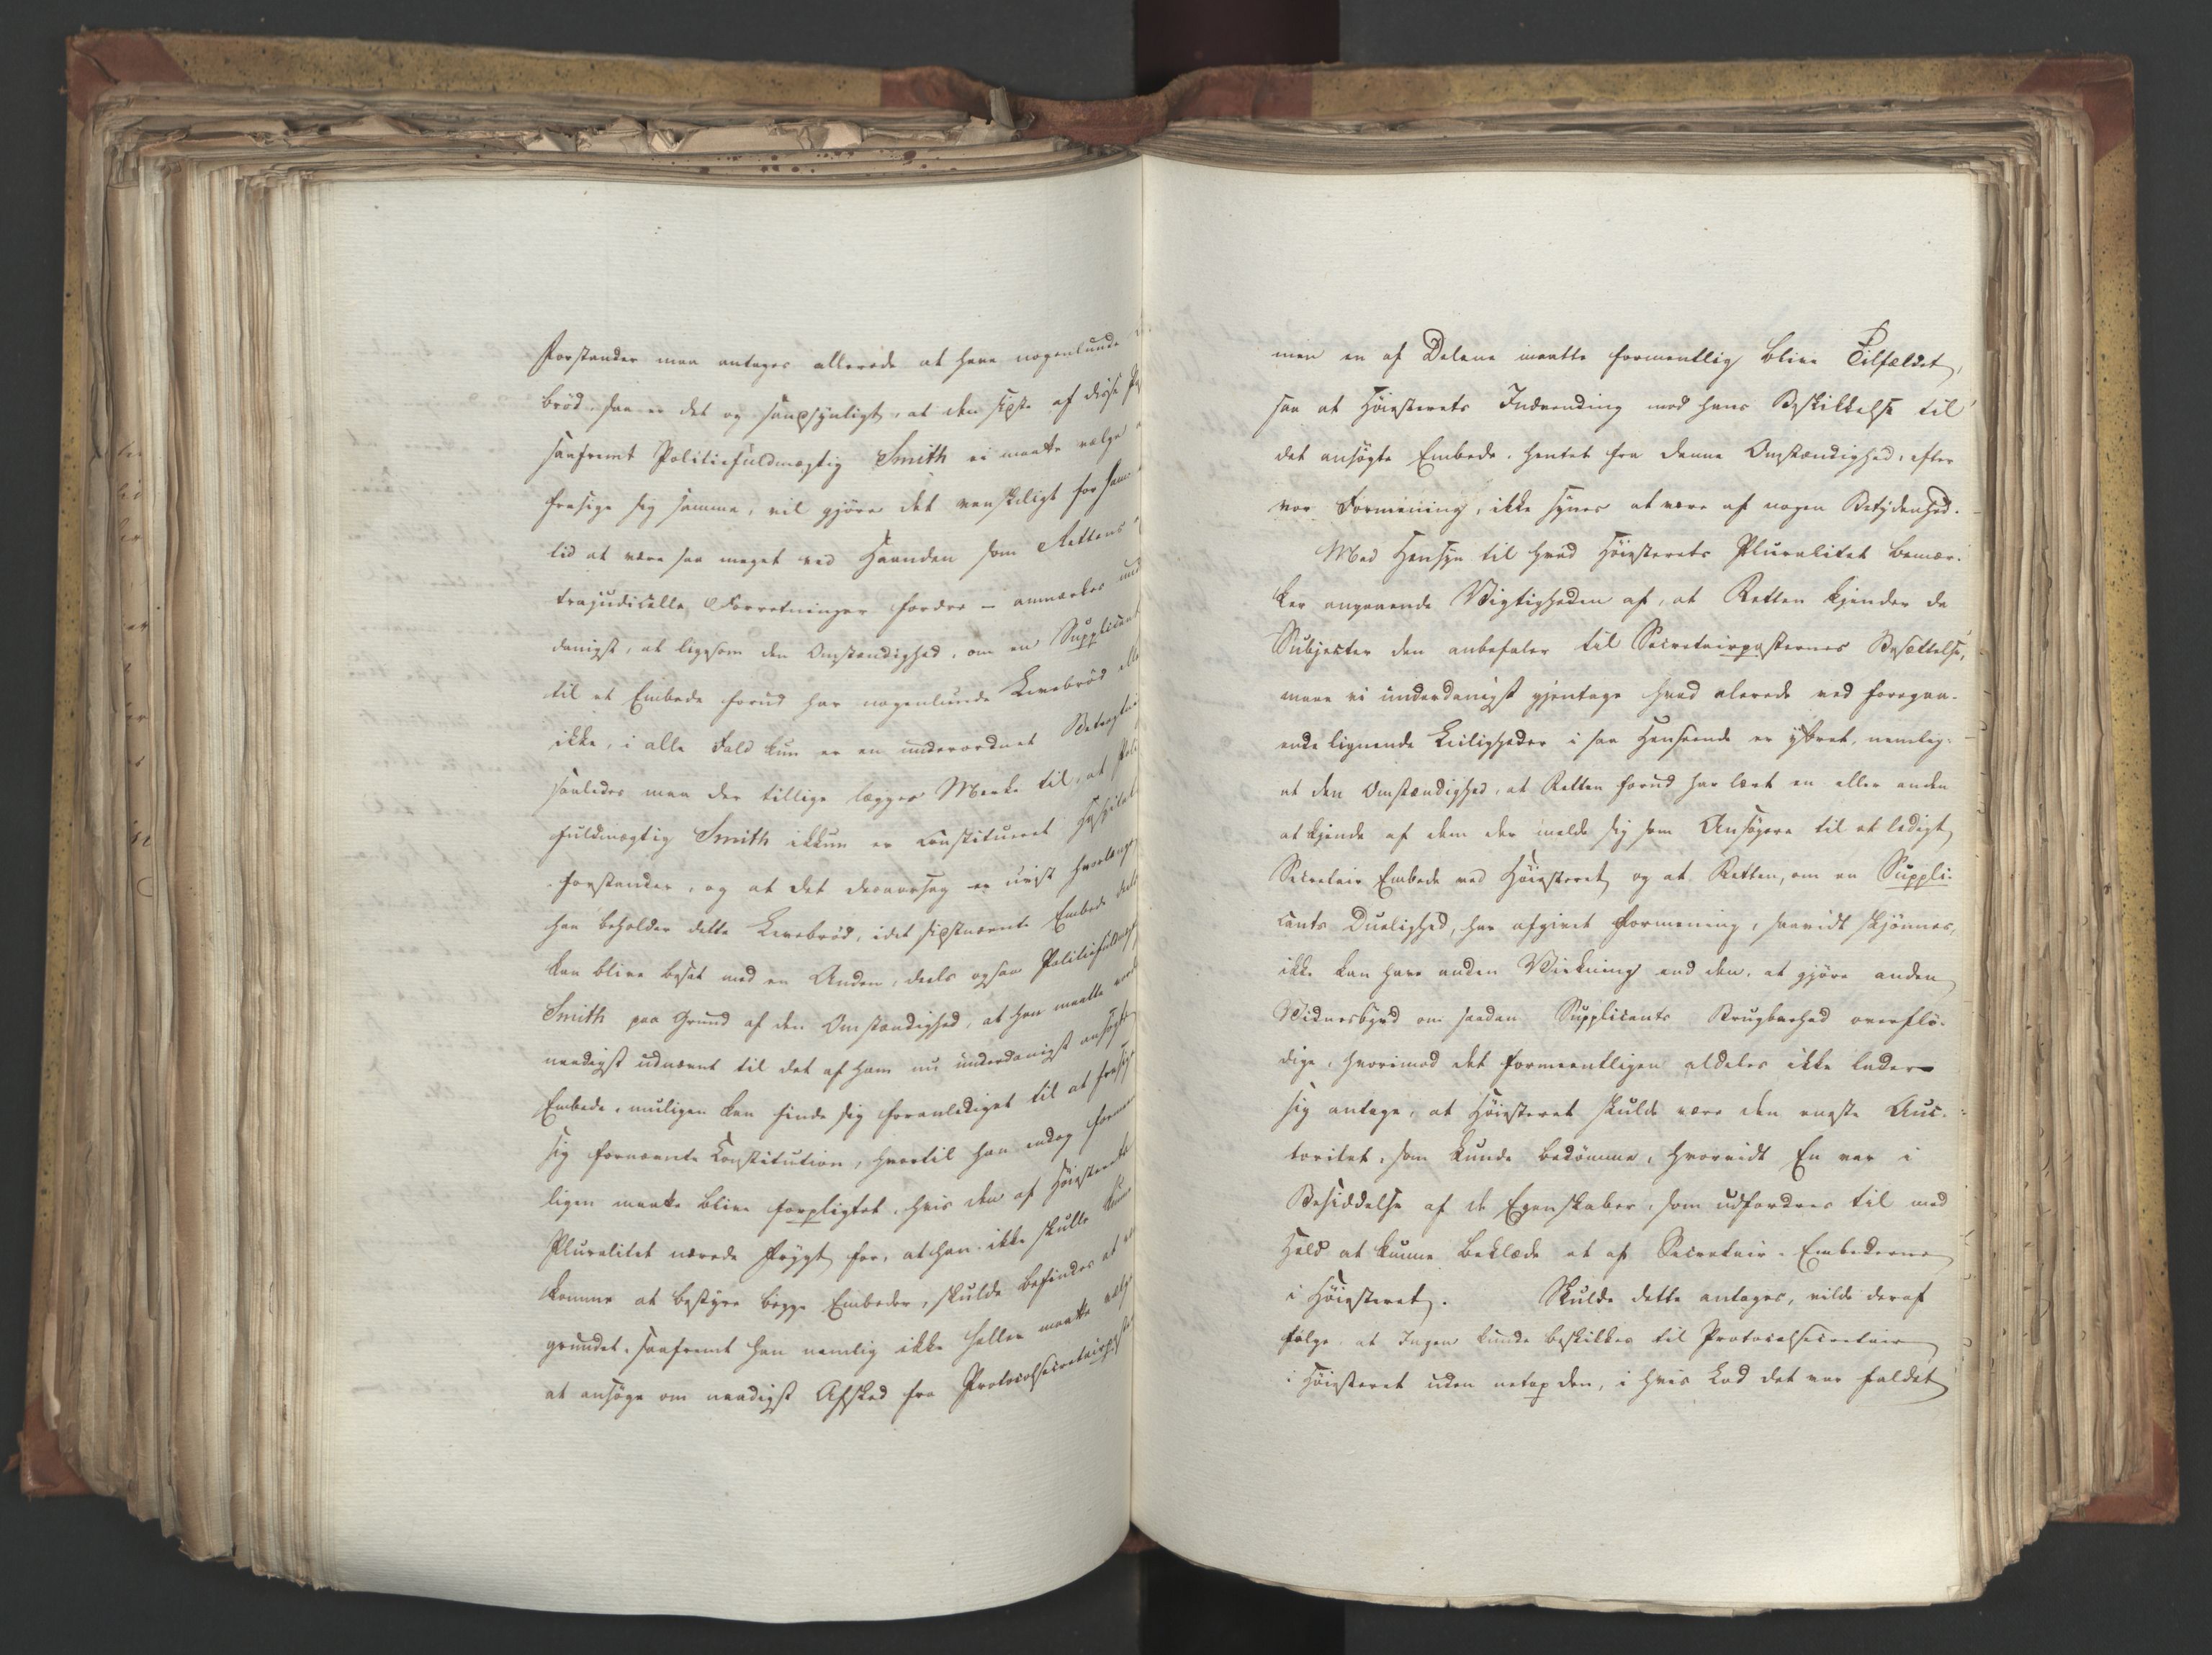 Forstander maa antages allerede at have nogenlunde
brød saa er det og sandsynligt, at den sidste af disse
saafremt Politiefuldmægtig Smith ei maatte vælge
frasige sig samme, vil gjøre det vanskeligt for ham
tid at være saa meget ved Haanden som Rettens
trajudicielle Forretninger fordre – anmærkes und
danigst, at ligesom den Omstændighed, om en Supplicant
til et Embede forud har nogenlunde Levebrød eller
ikke, i alle Fald kun er en underordnet Betragtni
saaledes maa der tillige lægges Mærke til, at Poli
fuldmægtig Smith ikkun er constitueret Hospitals
forstander, og at det desaarsag er uvist hvorlænge
han beholder dette Levebrød, idet sidstnævnte Embede deels
kan blive besat med en Anden, deels ogsaa Politiefuldmægt
Smith paa Grund af den Omstændighed, at han maatte vorde
naadigst udnævnt til det af ham nu underdanigst ansøgte
Embede, muligen kan finde sig foranlediget til at frasige
sig fornævnte Constitution, hvortil han endog formeent
ligen maatte blive forpligtet, hvis den af Høiesterets
Pluralitet nærede Frygt for, at han ikke skulle kunne
komme at bestyre begge Embeder, skulde befindes at v
grundet, saafremt han nemlig ikke heller maatte vælge
at ansøge om naadigst Afsked fra Protocolsecretairpost
men en af Delene maatte formentlig blive Tilfældet,
saa at Høiesterets Indvending mod hans Beskikkelse til
det ansøgte Embede, hentet fra denne Omstændighed, efter
vor Formening, ikke synes at være af nogen Betydenhed.
Med Hensyn til hvad Høiesterets Pluralitet bemær-
ker angaaende Vigtigheden af, at Retten kjender de
Subjecter den anbefaler til Secretairposternes Besættelse,
maae vi underdanigst gjentage hvad alerede ved foregaa-
ende lignende Leiligheder i saa Henseende er yttret, nemlig:
at den Omstændighed, at Retten forud har lært en eller anden
at kjende af dem der melde sig som Ansøgere til et ledigt
Secretair Embede ved Høiesteret, og at Retten, om en Suppli-
cants Duelighed, har afgivet Formening, saavidt skjønnes,
ikke kan have anden Virkning end den, at gjøre anden
Vidnesbyrd om saadan Supplicants Brugbarhed overflø-
dige, hvorimod det formeentligen aldeles ikke lader
sig antage, at Høiesteret skulde være den eneste Auc-
toritet, som kunde bedømme, hvorvidt En var i
Besiddelse af de Egenskaber, som udfordres til med
Held at kunne beklæde et af Secretair-Embederne
i Høiesteret. Skulde dette antages, vilde deraf
følge at Ingen kunde beskikkes til Protocolsecretair
i Høiesteret uden netop den, i hvis Lod det var faldet